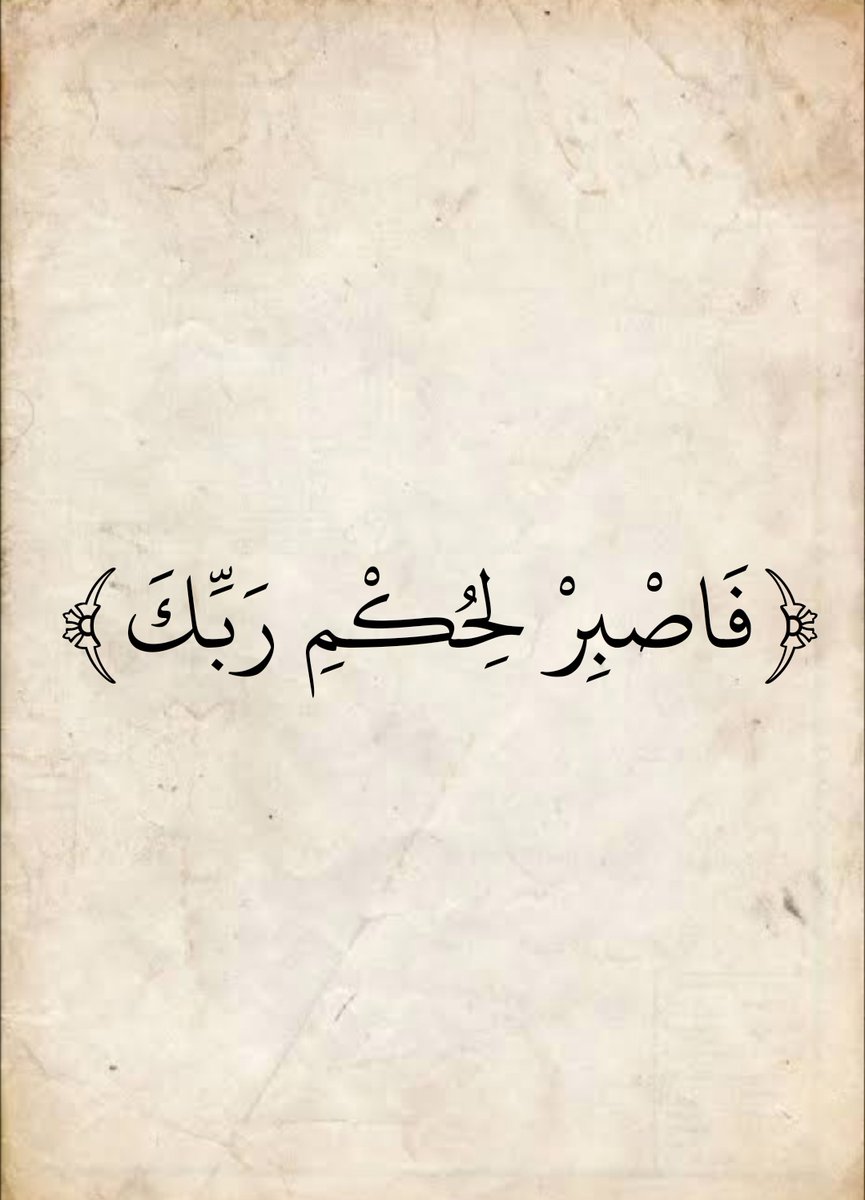 ﴿فَاصْبِرْ لِحُكْمِ رَبِّكَ﴾